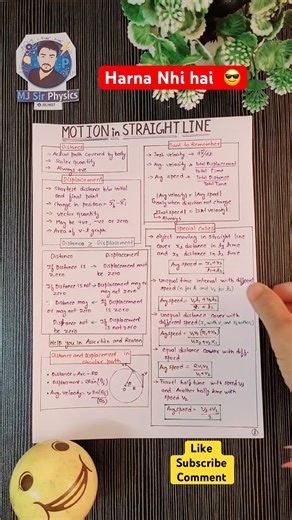 Harna Nhi hai 😎
MJ Sir Physics
MOTION in STRAIGHT LINE
Distance
→ Actual path covered by body
→ Scalar quantity
→ Always +ve
Displacement
→ Shortest distance b/w initial and final point
→ Change in position =
→ Vector quantity
→ May be +ve, -ve or zero
→ Area of v-t graph
Distance ≥ Displacement
Distance Displacement
If Distance is zero → Displacement must be zero
If Distance is not zero → Displacement may or may not zero
Distance may or may not zero ← If Displacement is zero
Distance not zero ← If Displacement is not zero
Help you in Assertion and Reason
Distance and Displacement in circular path
→ Distance = Arc = Rθ
→ Displacement = 2R sin(θ/2)
→ Avg. Velocity =
Point to Remember
→ Inst. velocity =
→ Avg. velocity = Total Displacement / Total Time
→ Avg speed = Total Distance / Total Time
|Avg velocity| = |Avg speed|
only when direction not change
Special Cases
→ object moving in straight line cover x₁ distance in t₁ time and x₂ distance in t₂ time
Avg speed = x₁+x₂ / t₁+t₂
→ Unequal time interval with different speed
Avg speed = v₁t₁ + v₂t₂ / t₁+t₂
→ Unequal distance cover with different speed
Avg speed =
→ equal distance cover with diff. speed
Avg speed = 2v₁v₂ / v₁+v₂
→ Travel half time with speed v₁ and Another half time with speed v₂
Avg speed = v₁+v₂ / 2
Like
Subscribe
Comment